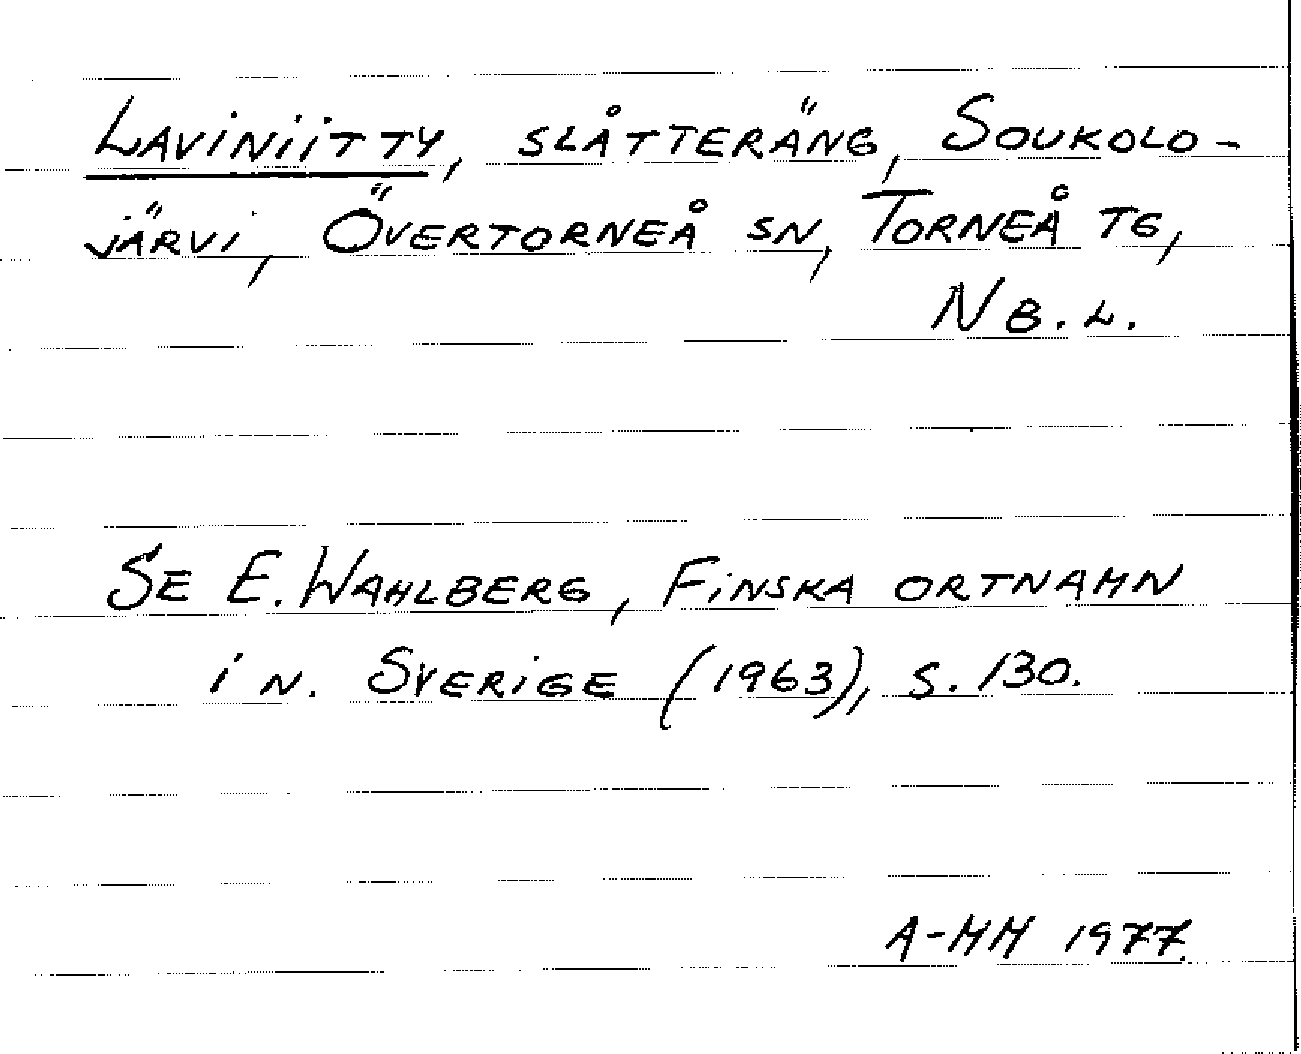 Laviniitty, slåtteräng, Soukolo-
järvi, Övertorneå sn, Torneå tg,
Nb.l.
Se E. Wahlberg, Finska ortnamn
i n. Sverige (1963), s. 130.
A-MM 1977.